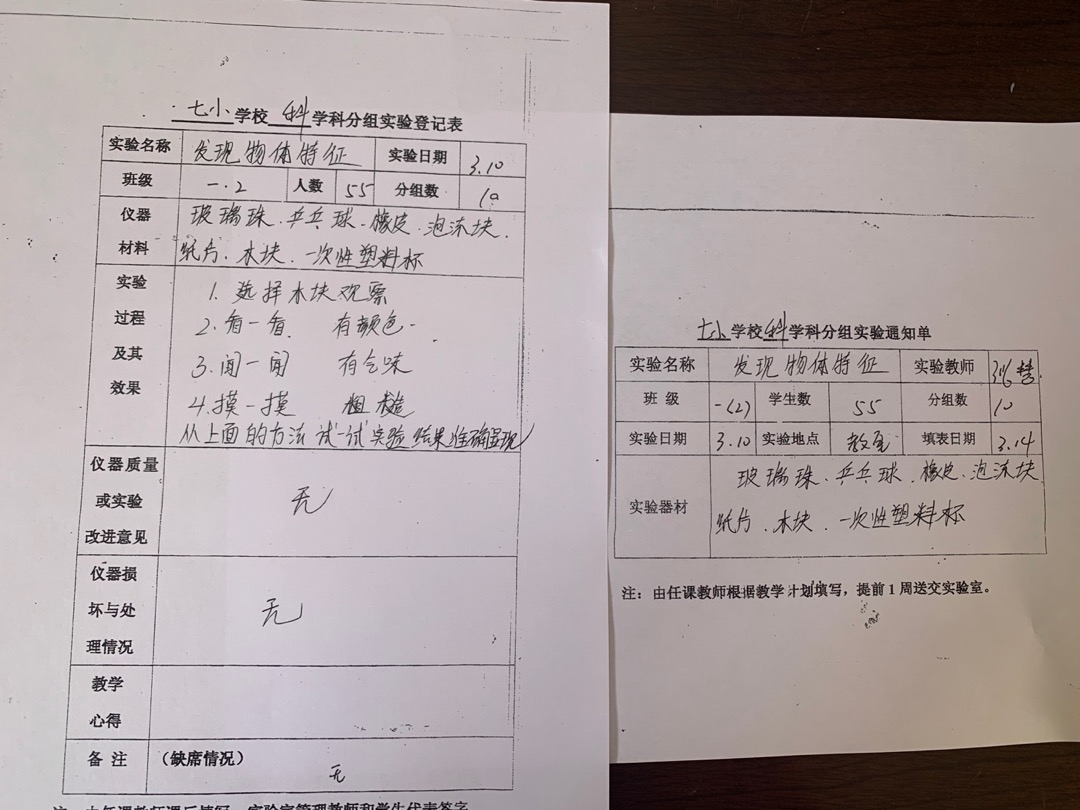 七小学校 科 学科分组实验登记表
实验名称 发现物体特征 实验日期 3.10
班级 一.2 人数 55 分组数 10
仪器材料 玻璃珠、乒乓球、橡皮、泡沫块、
纸片、木块、一次性塑料杯
实验过程及其效果
1. 选择木块观察
2. 看一看 有颜色
3. 闻一闻 有气味
4. 摸一摸 粗糙
从上面的方法试一试实验结果准确呈现
仪器质量或实验改进意见 无
仪器损坏与处理情况 无
教学心得
备注 (缺席情况)
无
注:由任课教师课后填写,实验室管理教师和学生代表签字
七小学校科学科分组实验通知单
实验名称 发现物体特征 实验教师
班 级 一(2) 学生数 55 分组数 10
实验日期 3.10 实验地点 教室 填表日期 3.14
实验器材 玻璃珠、乒乓球、橡皮、泡沫块
纸片、木块、一次性塑料杯
注:由任课教师根据教学计划填写,提前1周送交实验室。